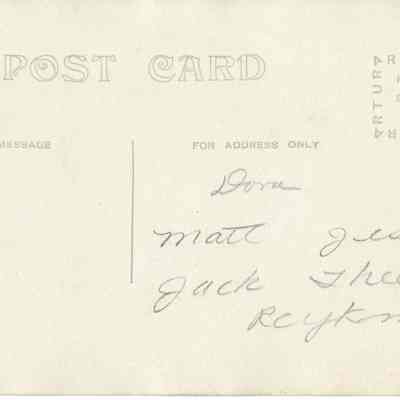 POST CARD
MESSAGE
FOR ADDRESS ONLY
ARTURA
Dora
Matt Jes
Jack Thee
Reykm